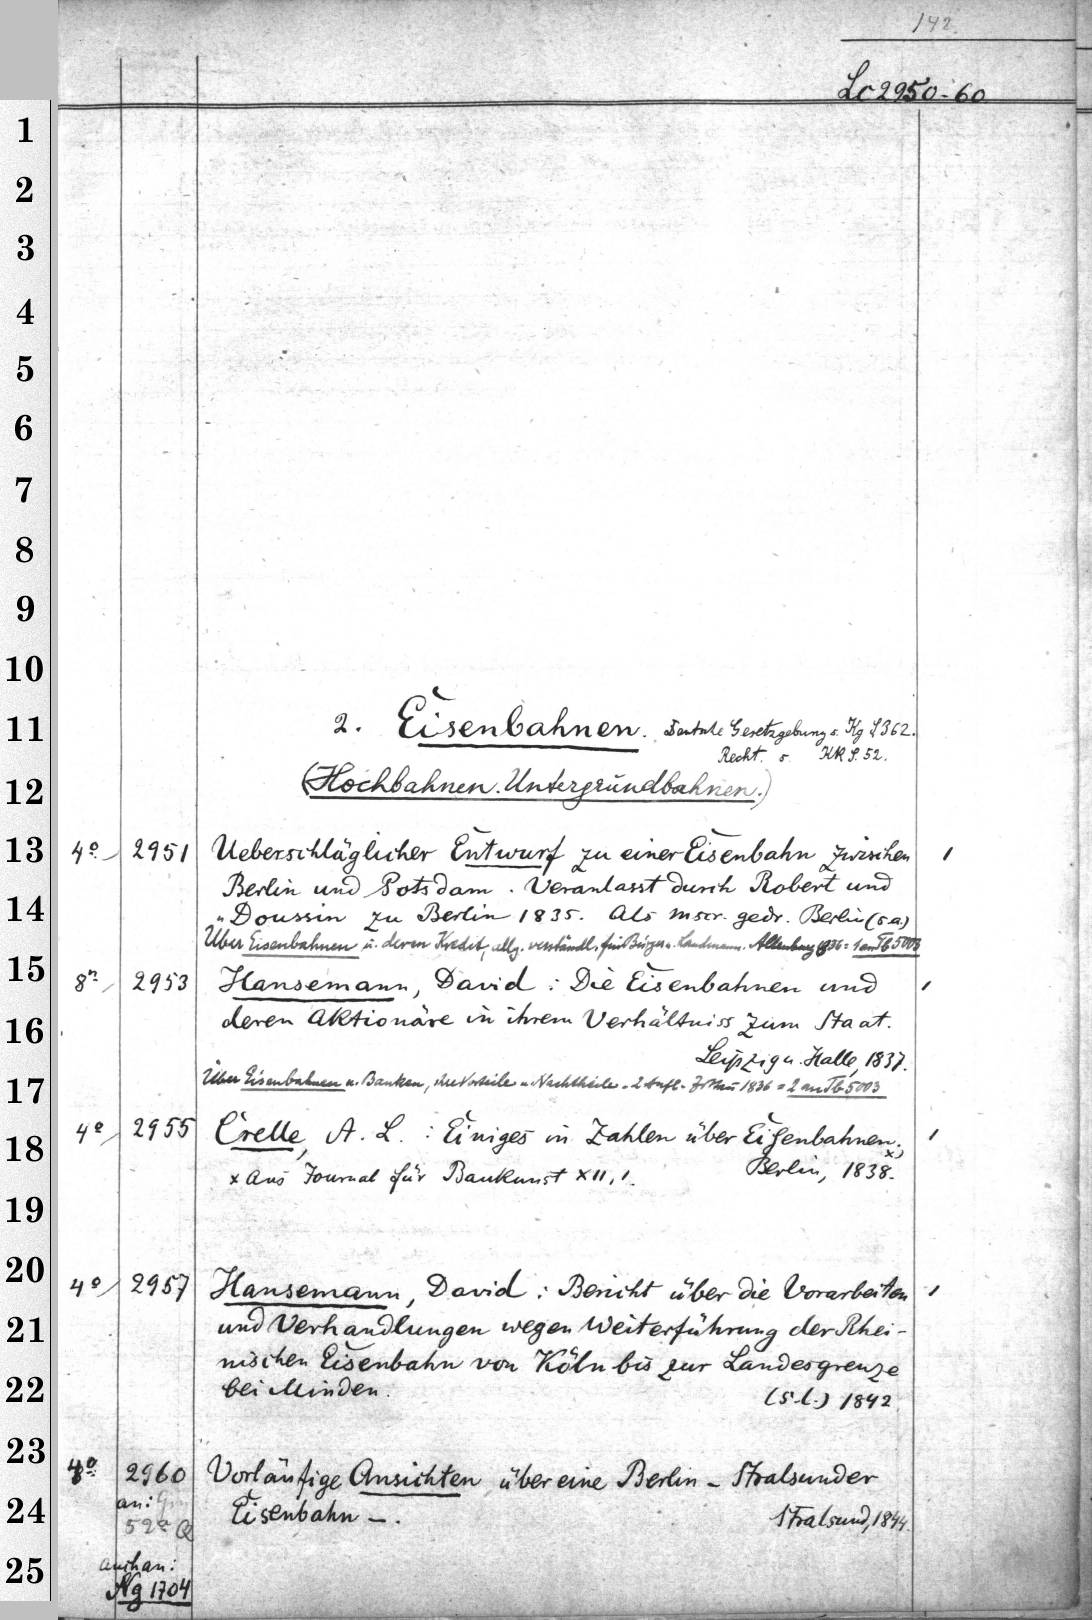 142.
Lc2950-60
1
2
3
4
5
6
7
8
9
10
11
12
13
14
15
16
17
18
19
20
21
22
23
24
25
2. Eisenbahnen. Deutsche Gesetzgebung s. Kg S362.
Recht. s. KK S. 52.
(Hochbahnen. Untergrundbahnen.)
4º 2951 Ueberschläglicher Entwurf zu einer Eisenbahn zwischen 1
Berlin und Potsdam. Veranlasst durch Robert und
„Doussin zu Berlin 1835. Als mscr. gedr. Berlin (s.a.)
Über Eisenbahnen u. deren Kredit, allg. verständl. für Bürger u. Landmann. Altenburg 1836 = 1 an Tb5003
8º 2953 Hansemann, David : Die Eisenbahnen und 1
deren Aktionäre in ihrem Verhältniss zum Staat.
Leipzig u. Halle, 1837.
Über Eisenbahnen u. Banken, ihre Vorteile u Nachtheile. 2 Aufl. 1836 = 2 an Tb5003
4º 2955 Crelle, A. L. : Einiges in Zahlen über Eisenbahnen. x) 1
x Aus Journal für Baukunst XII, 1. Berlin, 1838.
4º 2957 Hansemann, David : Bericht über die Vorarbeiten 1
und Verhandlungen wegen Weiterführung der Rhei-
nischen Eisenbahn von Köln bis zur Landesgrenze
bei Minden. (s.l.) 1842
4º 2960 Vorläufige Ansichten über eine Berlin - Stralsunder
an:
52ª Eisenbahn -. Stralsund, 1844.
auch an:
Ng 1704